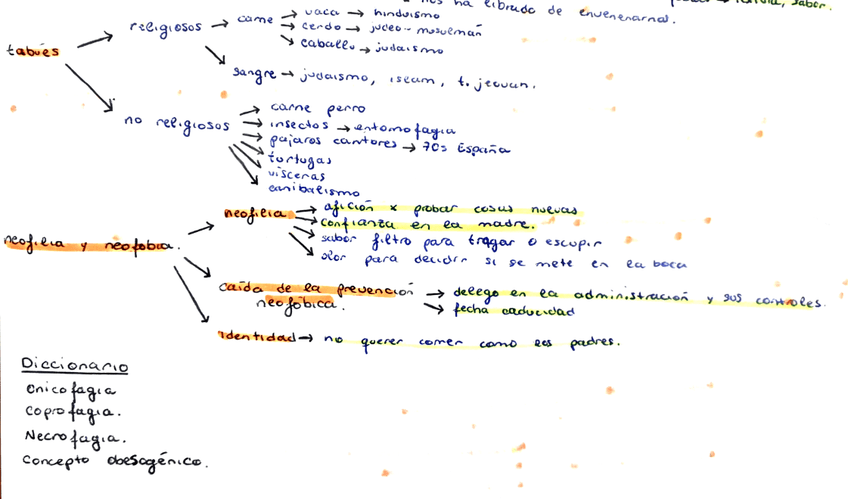 nos ha librado de envenenarnos. sabor.
tabúes → religiosos → carne → vaca → hinduismo
→ cerdo → judeo-musulmán
→ caballo → judaismo
→ sangre → judaismo, islam, t. jeovan.
→ no religiosos → carne perro
→ insectos → entomofagia
→ pajaros cantores → 70s España
→ tortugas
→ visceras
→ canibalismo
neofilia y neofobia. → neofilia → afición x probar cosas nuevas
→ confianza en la madre.
→ sabor filtro para tragar o escupir
→ olor para decidir si se mete en la boca
→ caída de la prevención neofóbica. → delego en la administración y sus controles.
→ fecha caducidad
→ identidad → no querer comer como los padres.
Diccionario
Onicofagia
Coprofagia.
Necrofagia.
Concepto obesogénico.